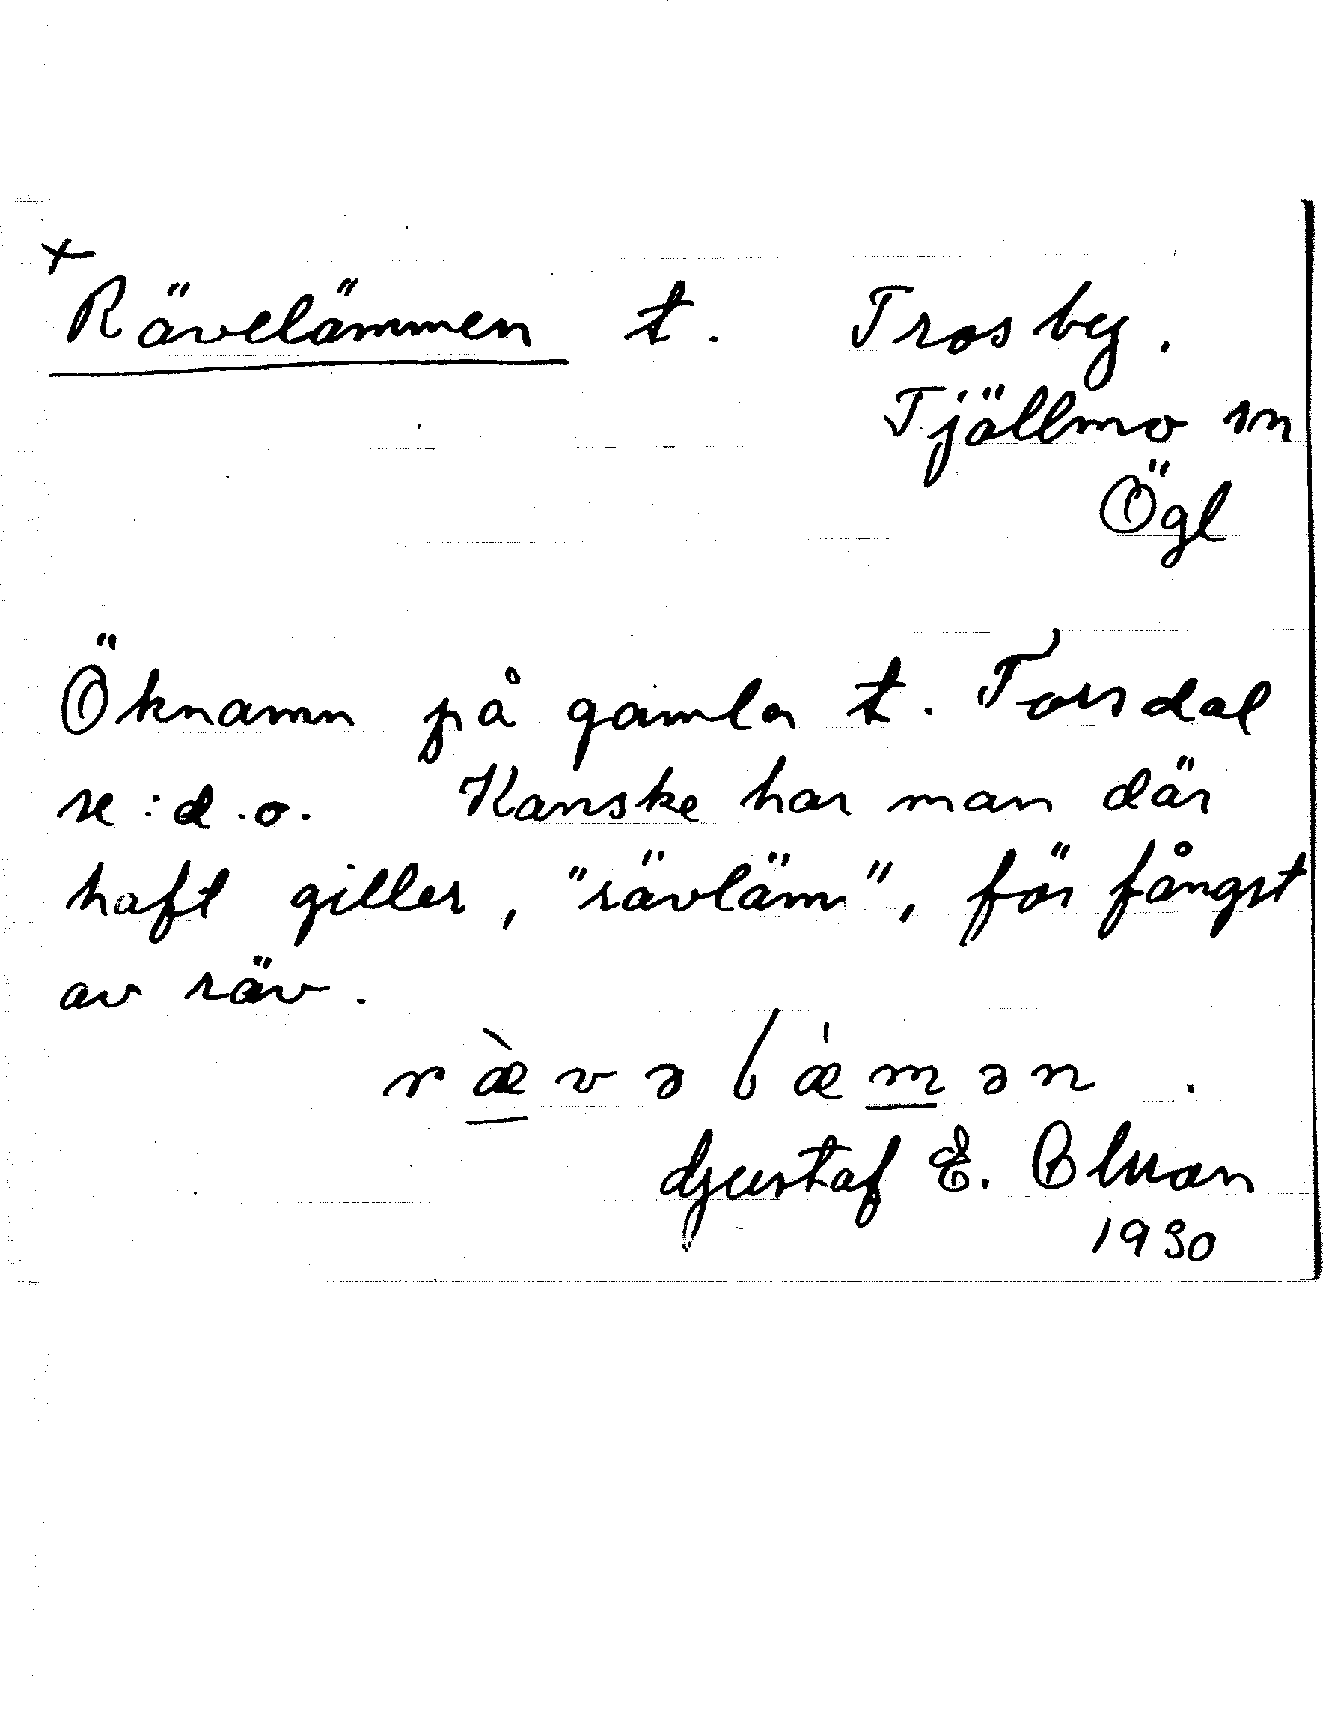 +
Rävelämmen t. Trosby.
Tjällmo sn
Ögl
Öknamn på gamla t. Torsdal
se : d.o. Kanske har man där
haft giller, "rävläm", för fångst
av räv.
ræ̀vəlæ̀mən.
Gustaf E. Blman
1930